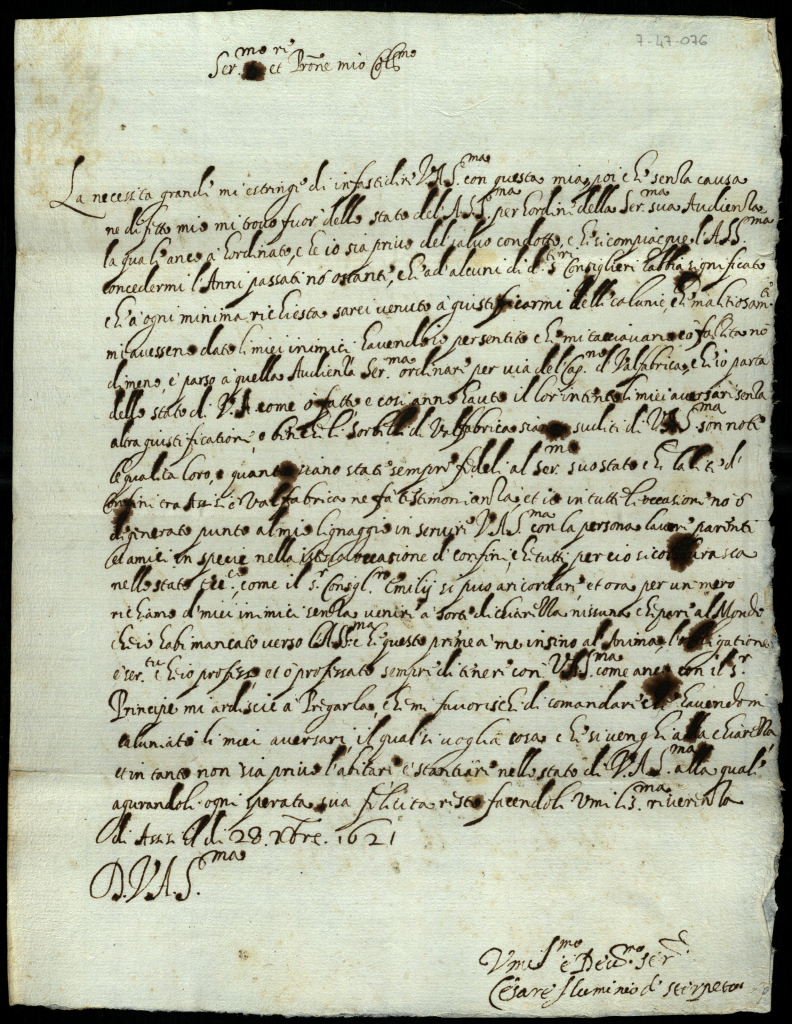 7-47-076
Ser.mo et Prōne mio Colmo
La necessita grande mi estringe di infastidire V.A.S.ma con questa mia, poi che senza causa
ne difetto mio mi trovo fuor dello stato del A.S.S.ma per l'ordine della Ser.ma sua Audienza
la quale anco à hordinato, che io sia privo del salvo condotto, che si compiacque l'A.S.S.ma
concedermi l'Anni passati nō ostante, che ad alcuni di d.ti S.ri Consiglieri habbia significato
ch'a ogni minima richiesta sarei venuto a giustificarmi delle calunie, che malitiosam.te
mi avessero dato li miei inimici havendo io persentito che mi tacciavano
dimeno, è parso a quella Audienza Ser.ma ordinare per via del Cap.no d Valfabrica, che io parta
dello stato di V.A. come ò fatto, e cosi anno hauto il lor intento li miei aversari senza
altra giustificatione, e benche li Sorbilli di Valfabrica siano suditi di V.A.S.ma son note
le qualita loro, e quanto siano stati sempre fideli al Ser.mo suo stato che la lite d'
confini tra Assisi e Valfabrica ne fa testimonienza, et io in tutte l'occasione nō ò
digenerato punto al mio lignaggio in servire V.A.S.ma con la persona, havere parenti
et amici in specie nella istessa occasione di confini, che tutti per cio si
nello stato come il S.r Consigl.ro Emilij si puo aricordare, et ora per un mero
richiamo d'miei inimici senza venire a sorte di chiarezza nissuna che pare al Mondo
che io habi mancato verso l'A.S.S.ma che questo prieme a me insino al Anima l'obligatione
e ser.tu che io professo, et ò professato sempre di tinere con V.A.S.ma come anco con il S.r
Principe mi ardiscie a Pregarla, che mi favorischi di comandare che havendomi
caluniato li miei aversari il qual si voglia cosa che si venghi alla chiarezza
et in tanto non sia privo l'abitare e stantiare nello stato di V.A.S.ma alla quale
agurandoli ogni sperata sua felicita resto facendoli Umilis.ma riverenza
di Assisi il di 28 Xbre. 1621
D.V.A.S.ma
Umilis.mo e Devo.mo Ser.e
Cesare Iluminio di Sterpeto